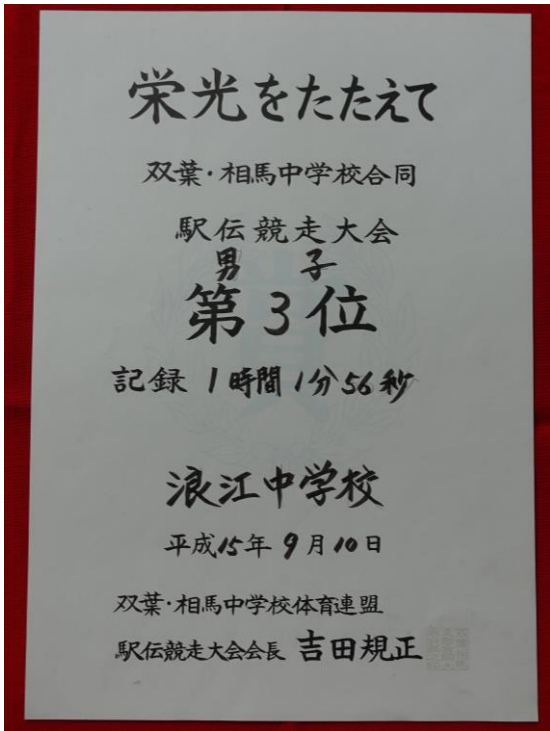 栄光をたたえて
双葉・相馬中学校合同
駅伝競走大会
男子
第3位
記録 1時間1分56秒
浪江中学校
平成15年9月10日
双葉・相馬中学校体育連盟
駅伝競走大会会長 吉田規正